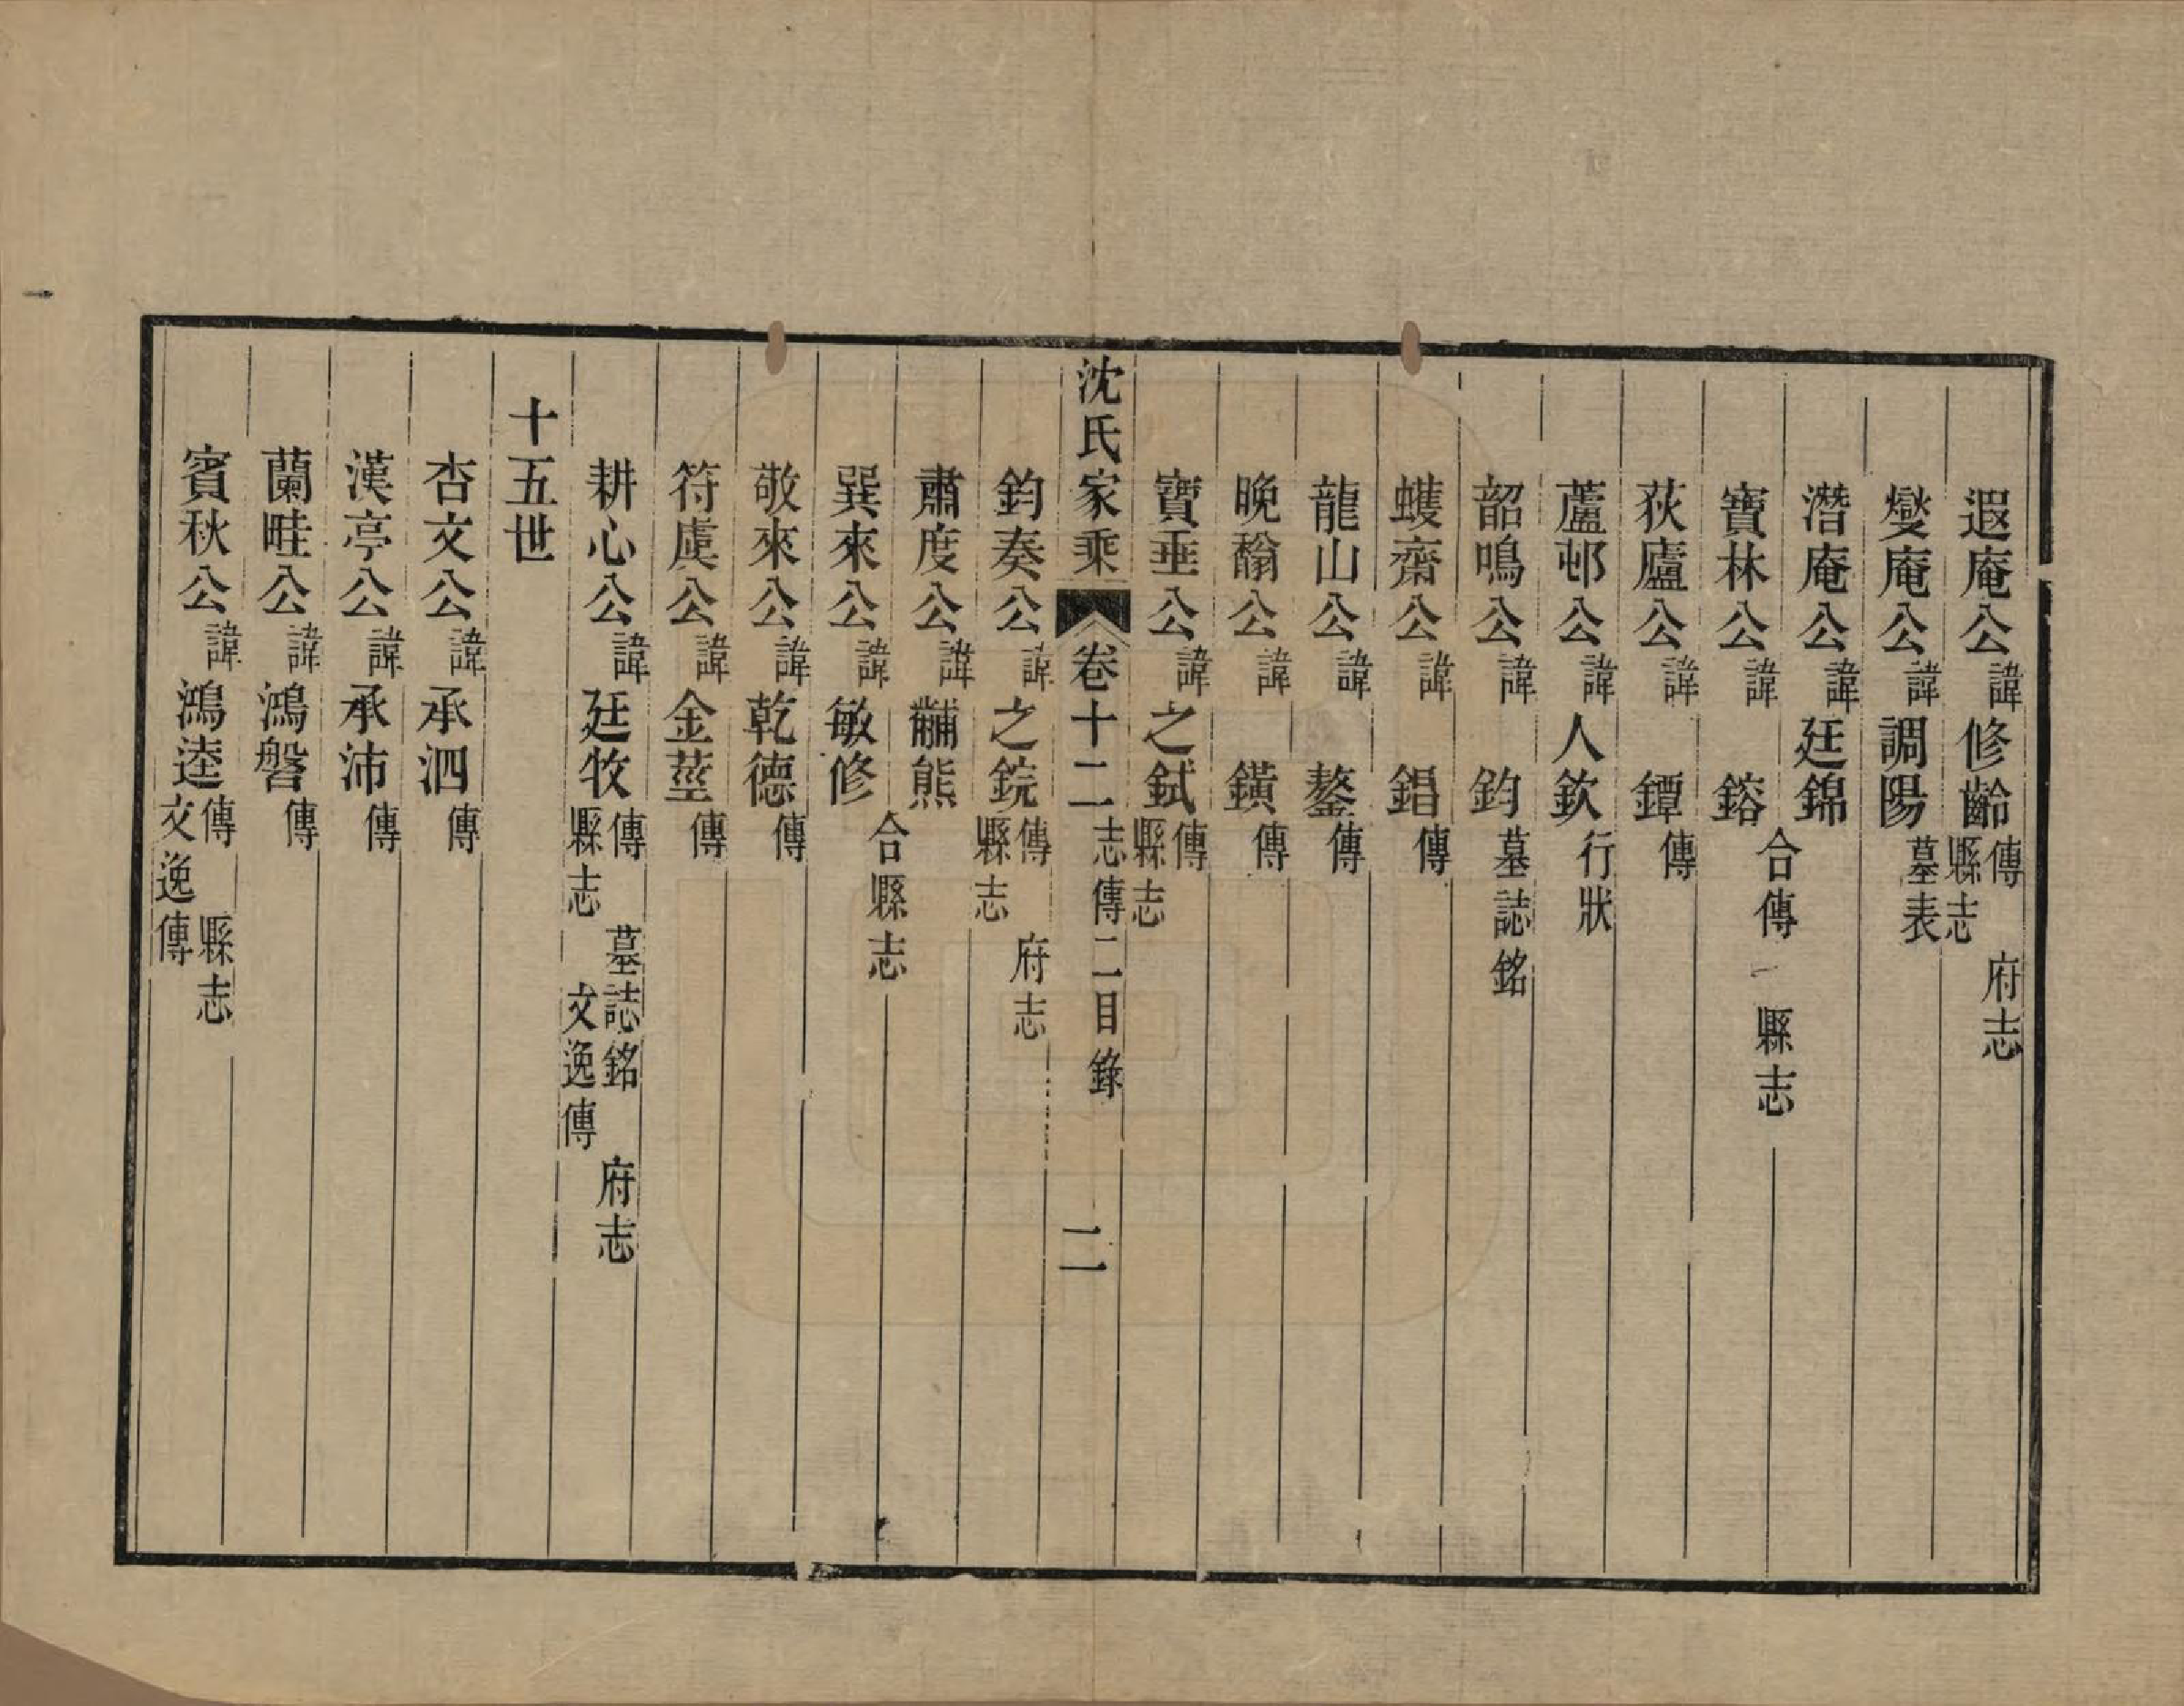 遐庵公諱修齡傳縣志府志
燮庵公諱調陽墓表
潛庵公諱廷錦
寶林公諱鎔合傳縣志
荻廬公諱鐔傳
蘆邨公諱人欽行狀
韶鳴公諱鈞墓誌銘
蠖齋公諱錩傳
龍山公諱鏊傳
晚翰公諱鐄傳
寶垂公諱之鉽傳縣志
沈氏家乘卷十二志傳二目錄二
鈞奏公諱之鋎傳縣志府志
肅度公諱黼熊
巽來公諱敏修合縣志
敬來公諱乾德傳
符虞公諱金莖傳
耕心公諱廷牧傳縣志墓誌銘文逸傳府志
十五世
杏文公諱承泗傳
漢亭公諱承沛傳
蘭畦公諱鴻磐傳
賓秋公諱鴻逵傳文逸傳縣志